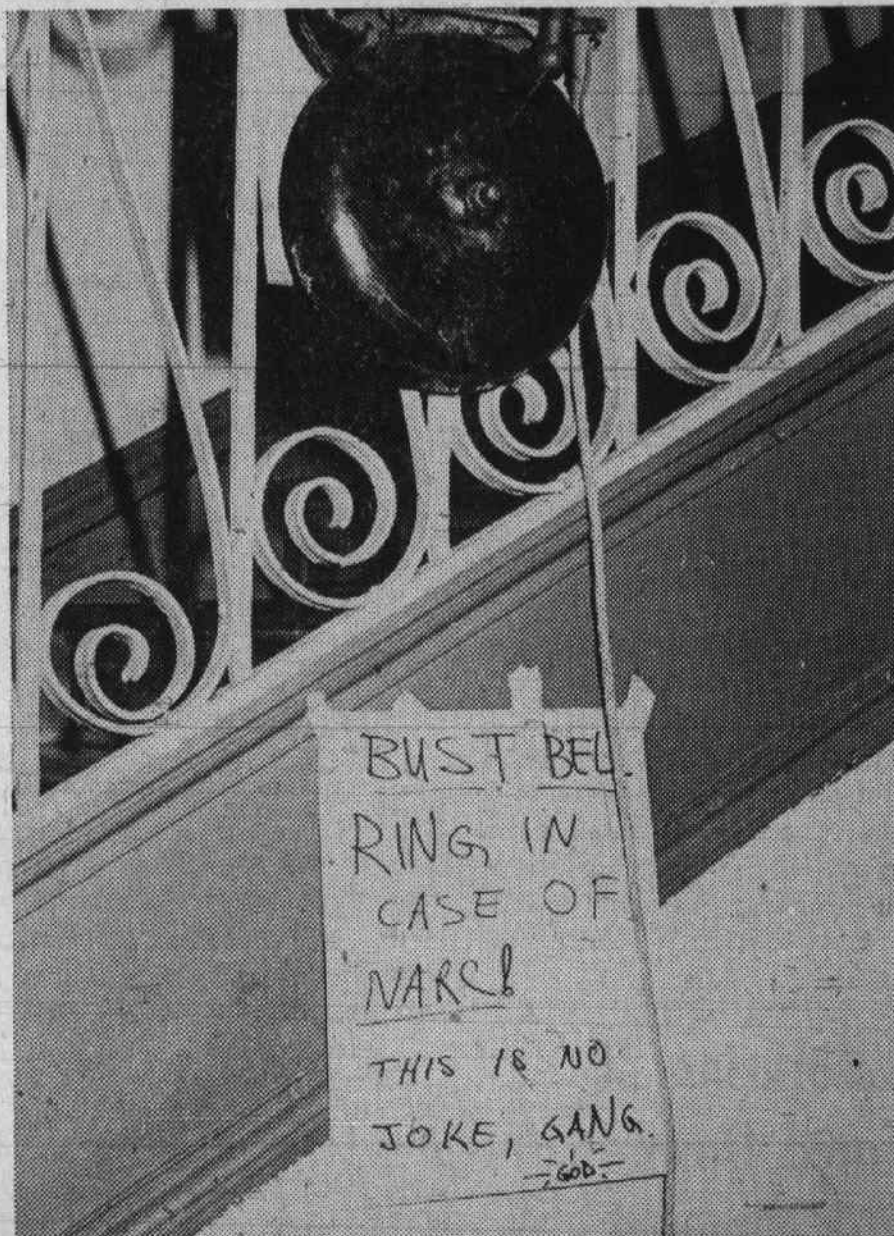 BUST BEL
RING IN
CASE OF
NARC!
THIS IS NO
JOKE, GANG.
GOD